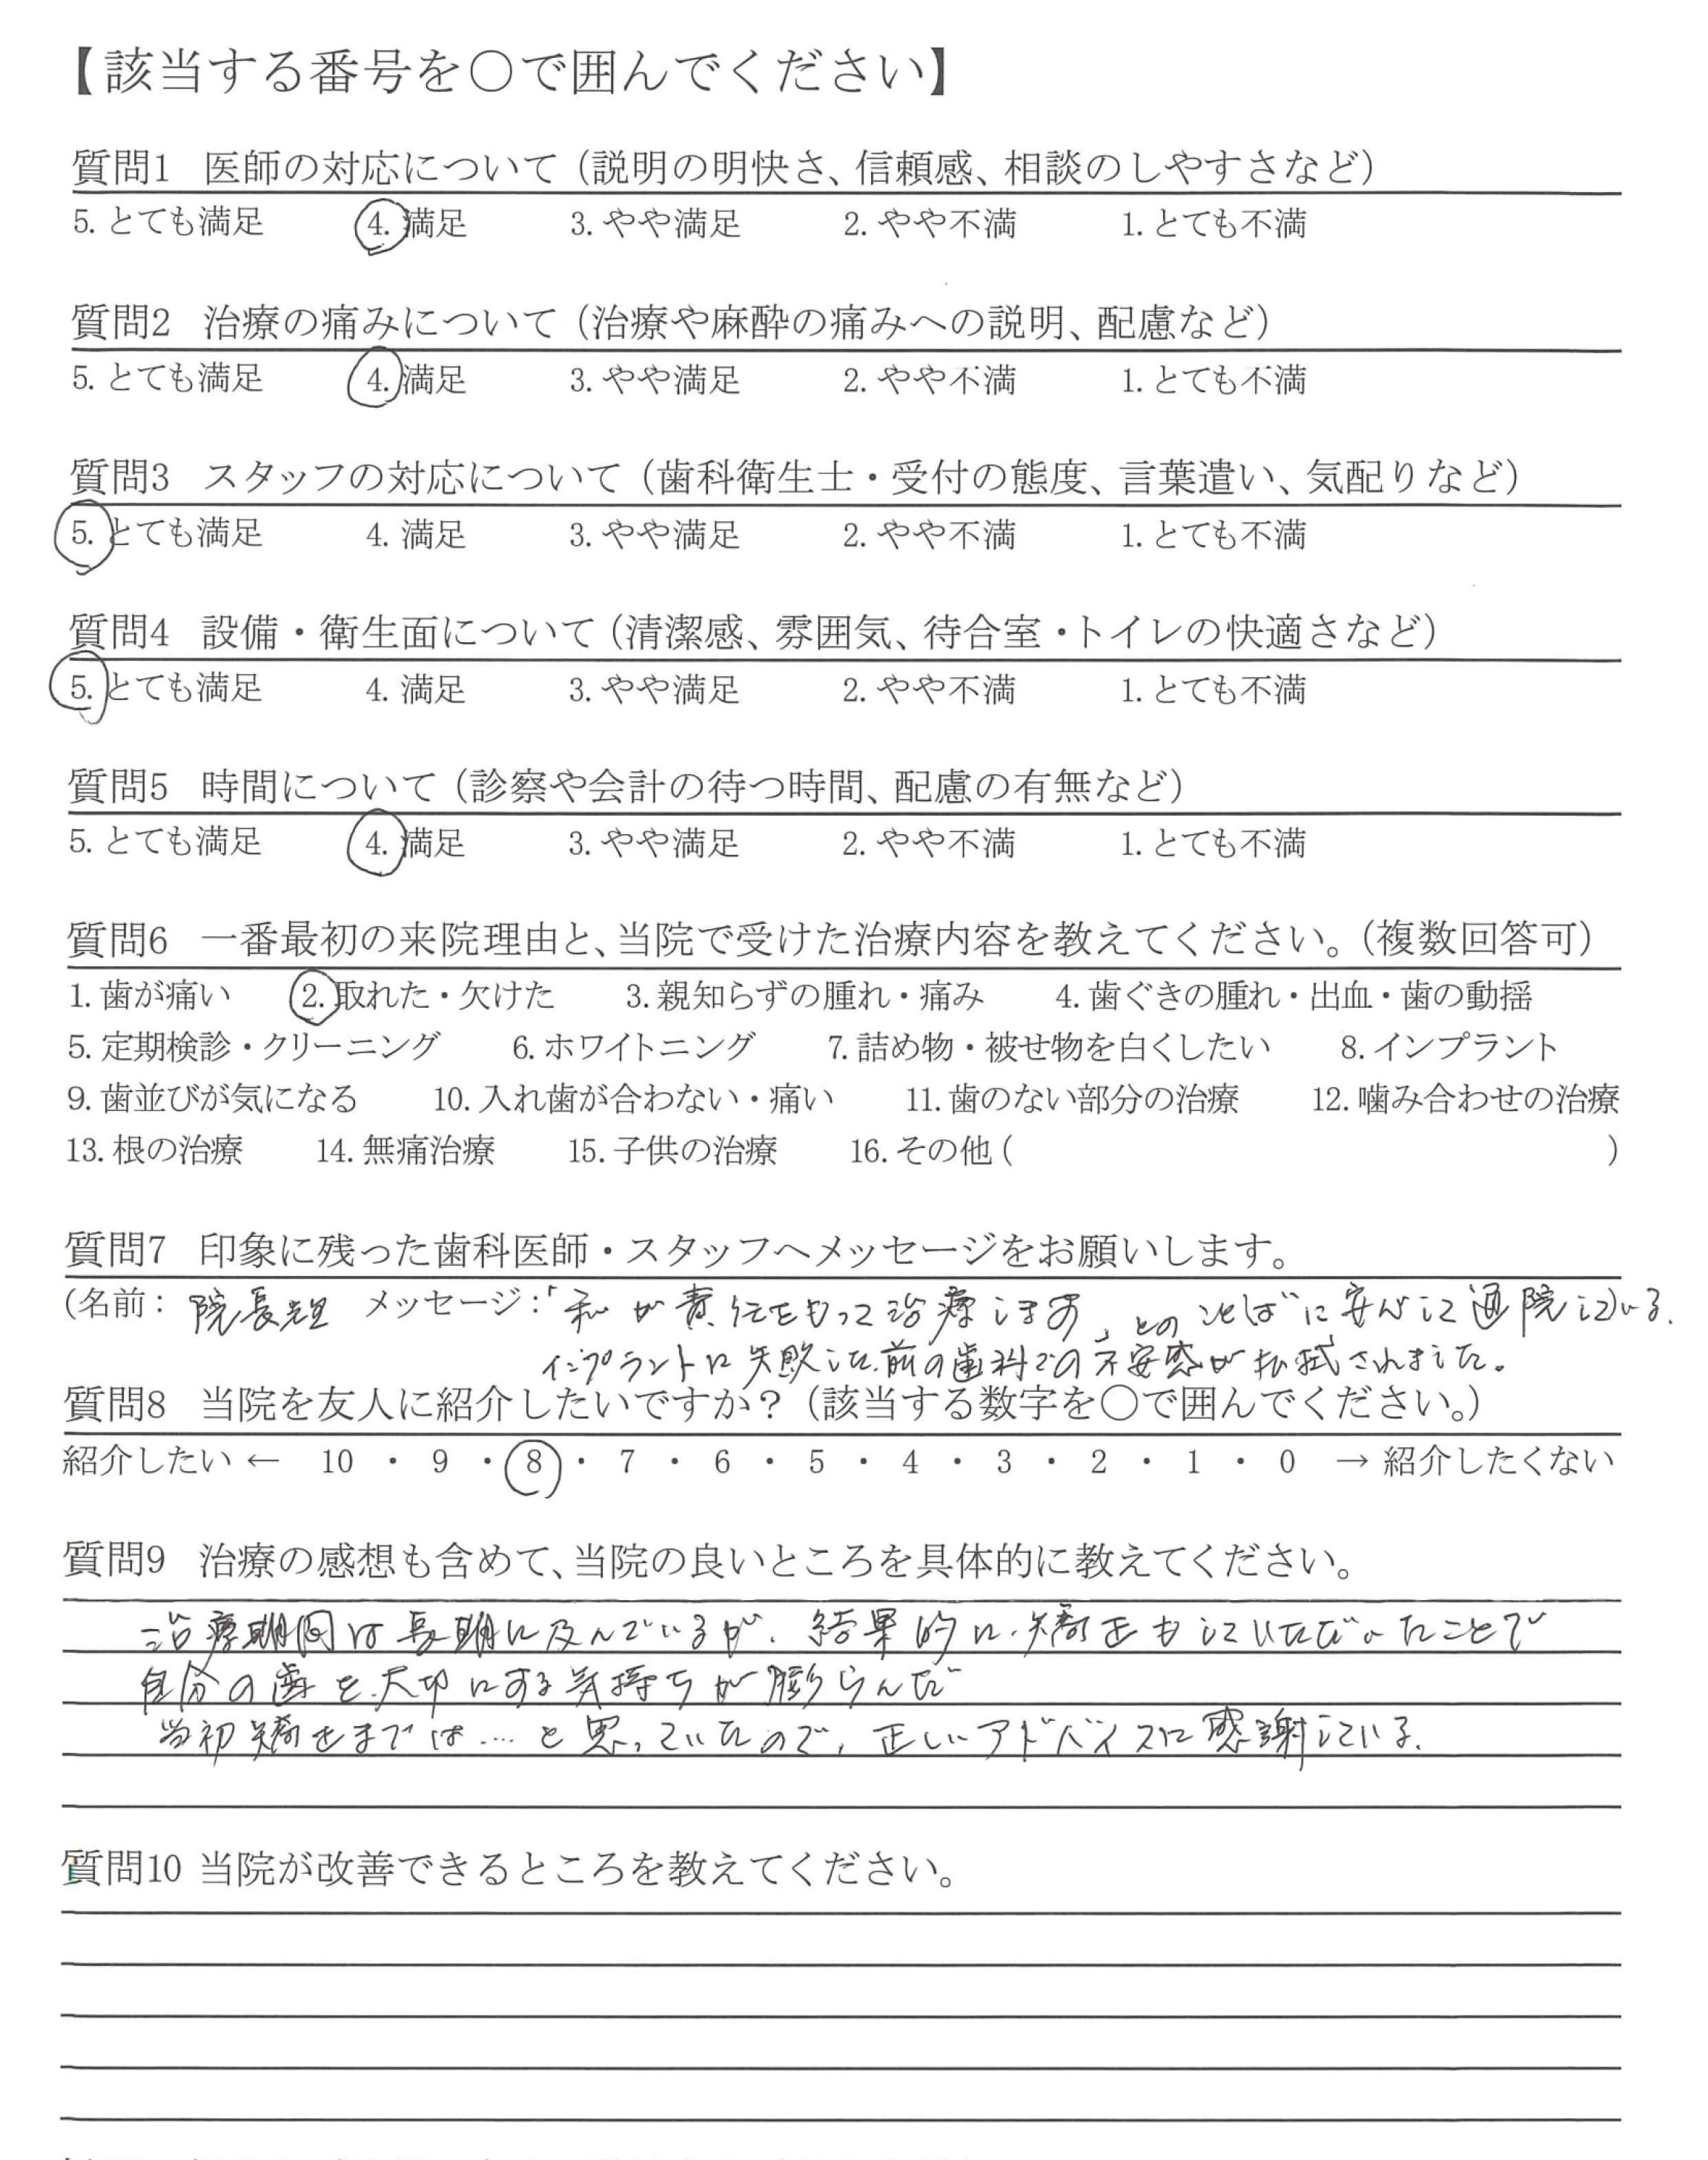 【該当する番号を〇で囲んでください】
質問1 医師の対応について（説明の明快さ、信頼感、相談のしやすさなど）
5. とても満足 4. 満足 3. やや満足 2. やや不満 1. とても不満
質問2 治療の痛みについて（治療や麻酔の痛みへの説明、配慮など）
5. とても満足 4. 満足 3. やや満足 2. やや不満 1. とても不満
質問3 スタッフの対応について（歯科衛生士・受付の態度、言葉遣い、気配りなど）
5. とても満足 4. 満足 3. やや満足 2. やや不満 1. とても不満
質問4 設備・衛生面について（清潔感、雰囲気、待合室・トイレの快適さなど）
5. とても満足 4. 満足 3. やや満足 2. やや不満 1. とても不満
質問5 時間について（診察や会計の待つ時間、配慮の有無など）
5. とても満足 4. 満足 3. やや満足 2. やや不満 1. とても不満
質問6 一番最初の来院理由と、当院で受けた治療内容を教えてください。（複数回答可）
1. 歯が痛い 2. 取れた・欠けた 3. 親知らずの腫れ・痛み 4. 歯ぐきの腫れ・出血・歯の動揺
5. 定期検診・クリーニング 6. ホワイトニング 7. 詰め物・被せ物を白くしたい 8. インプラント
9. 歯並びが気になる 10. 入れ歯が合わない・痛い 11. 歯のない部分の治療 12. 噛み合わせの治療
13. 根の治療 14. 無痛治療 15. 子供の治療 16. その他 ( )
質問7 印象に残った歯科医師・スタッフへメッセージをお願いします。
（名前： 院長先生 メッセージ：「私が責任をもって治療します」とのことばに安心して通院している.
インプラントに失敗した.前の歯科での不安感が払拭されました。
質問8 当院を友人に紹介したいですか？（該当する数字を〇で囲んでください。）
紹介したい ← 10 ・ 9 ・ 8 ・ 7 ・ 6 ・ 5 ・ 4 ・ 3 ・ 2 ・ 1 ・ 0 → 紹介したくない
質問9 治療の感想も含めて、当院の良いところを具体的に教えてください。
治療期間は長期に及んでいるが、結果的に.矯正もしていただいたことで
自分の歯を.大切にする気持ちが膨らんだ
当初矯正までは....と思っていたので、正しいアドバイスに感謝している.
質問10 当院が改善できるところを教えてください。